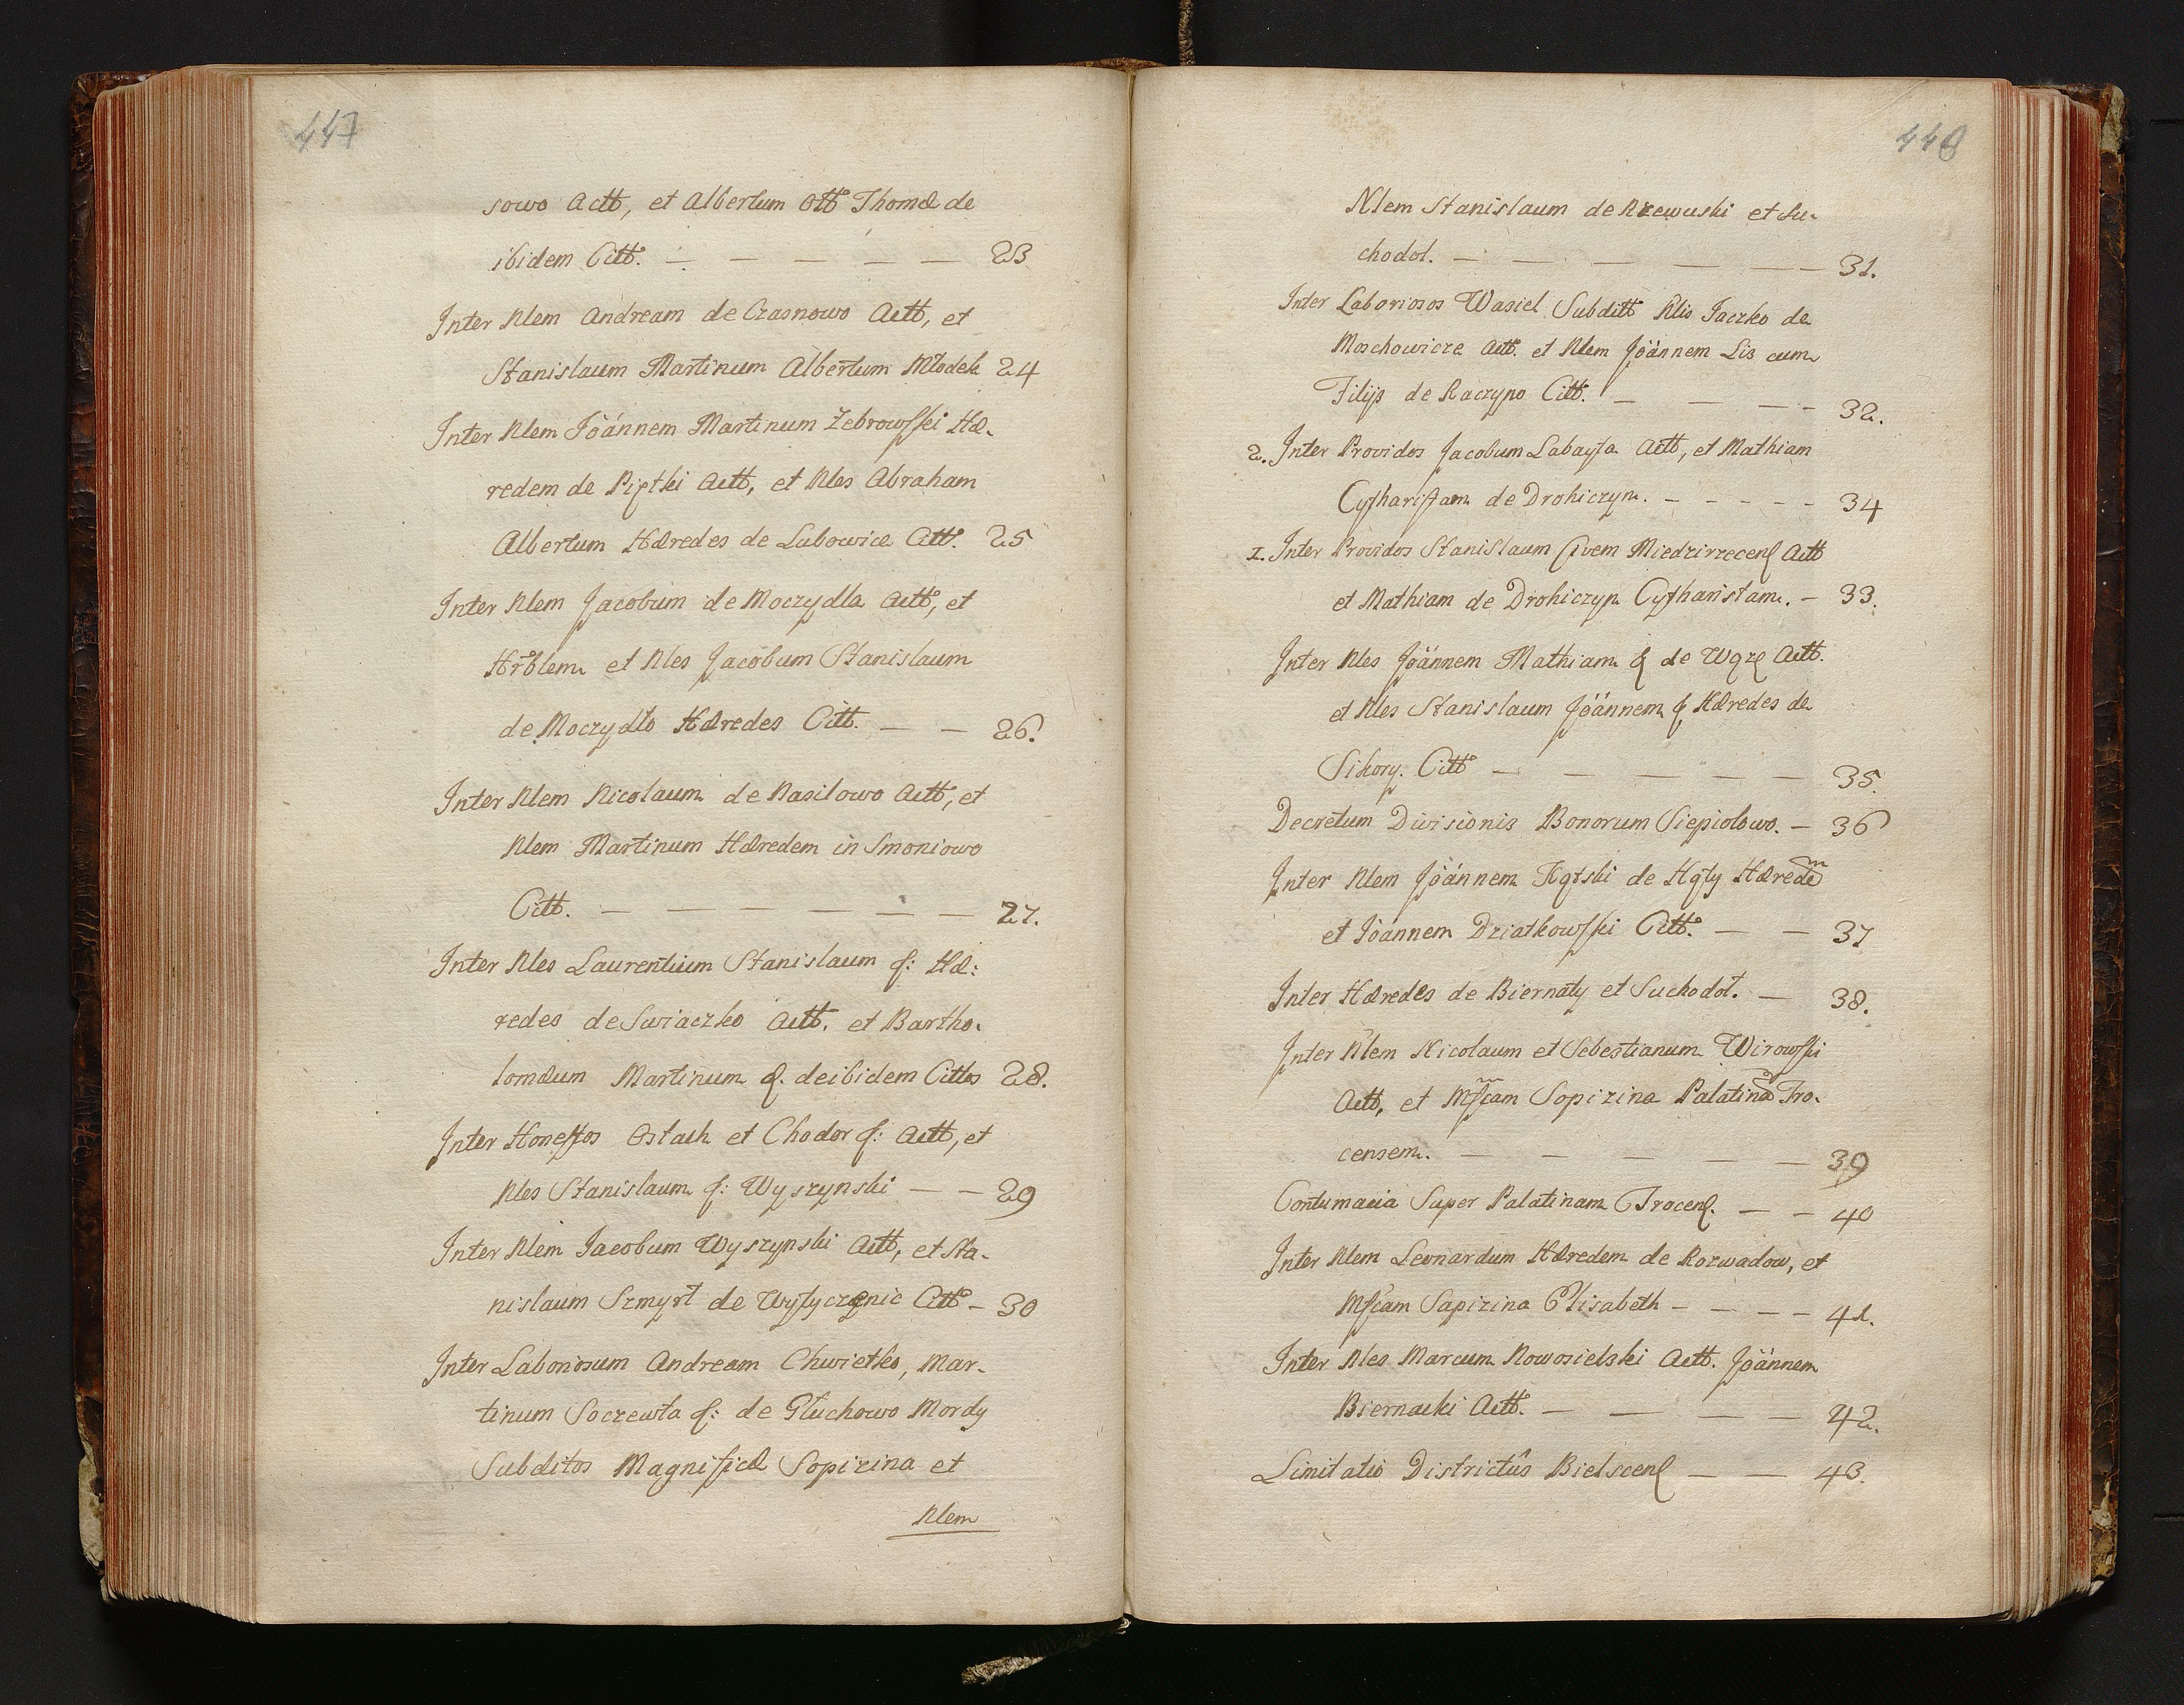 447
sowo Actt, et Albertum Ott Thomæ de
ibidem Citt. — — — — — 23
Inter Nlem Andream de Czasnowo Actt, et
Stanislaum Martinum Albertum Młodek 24
Inter Nlem Joánnem Martinum Żebrowski Hæ-
redem de Piętki Actt, et Nles Abraham
Albertum Hæredes de Lubowice Citt. 25
Inter Nlem Jacobum de Moczydla Actt, et
et Nles Jacobum Stanislaum
de Moczydło Hæredes Citt. — — 26.
Inter Nlem Nicolaum de Nasilowo Actt, et
Nlem Martinum Hæredem in Smoniowo
Citt. — — — — — — 27.
Inter Nles Laurentium Stanislaum &: Hæ:
redes de Swiaczko Actt. et Bartho-
lomæum Martinum &. deibidem Cittos 28.
Inter Honestos Ostach et Chodor &: Actt, et
Nles Stanislaum &: Wyszynski — — 29
Inter Nlem Jacobum Wyszynski Actt, et Sta-
nislaum Szmyrt de Citt — 30
Inter Laboriosum Andream Chwietko, Mar-
tinum Soczewka &: de Głuchowo Mordy
Subditos Magnificæ Sopizina et
Nlem
448
Nlem Stanislaum de Rzewuski et Su-
chodol. — — — — — — 31.
Inter Laboriosos Wasiel Subditt Nlis Jaczko de
Moschowicze Actt. et Nlem Joánnem Lis cum
Filijs de Raczyno Citt. — — — — 32.
2. Inter Providos Jacobum Labaysa Actt, et Mathiam
Cytharistam de Drohiczyn. — — — — — 34
1. Inter Providos Stanislaum Civem Miedzirzecens Actt
et Mathiam de Drohiczyn Cytharistam. — 33.
Inter Nles Joánnem Mathiam & de Wąże Actt.
et Nles Stanislaum Joánnem & Hæredes de
Sikory. Citt — — — — — 35.
Decretum Divisionis Bonorum Siepiolowo. — 36
Inter Nlem Joánnem Kątski de Kąty Hæredem
et Joánnem Dziatkowski Citt. — — 37
Inter Hæredes de Biernaty et Suchodoł. — 38.
Inter Nlem Nicolaum et Sebestianum Wirowski
Actt, et Mficam Sopizina Palatinam Tro-
censem. — — — — — 39
Contumacia Super Palatinam Trocens. — — 40
Inter Nlem Leonardum Hæredem de Rozwadow, et
Mficam Sapizina Elisabeth — — — — 41.
Inter Nles Marcum Nowosielski Actt. Joánnem
Biernacki Actt. — — — — 42.
Limitatio Districtûs Bielscens — — 43.